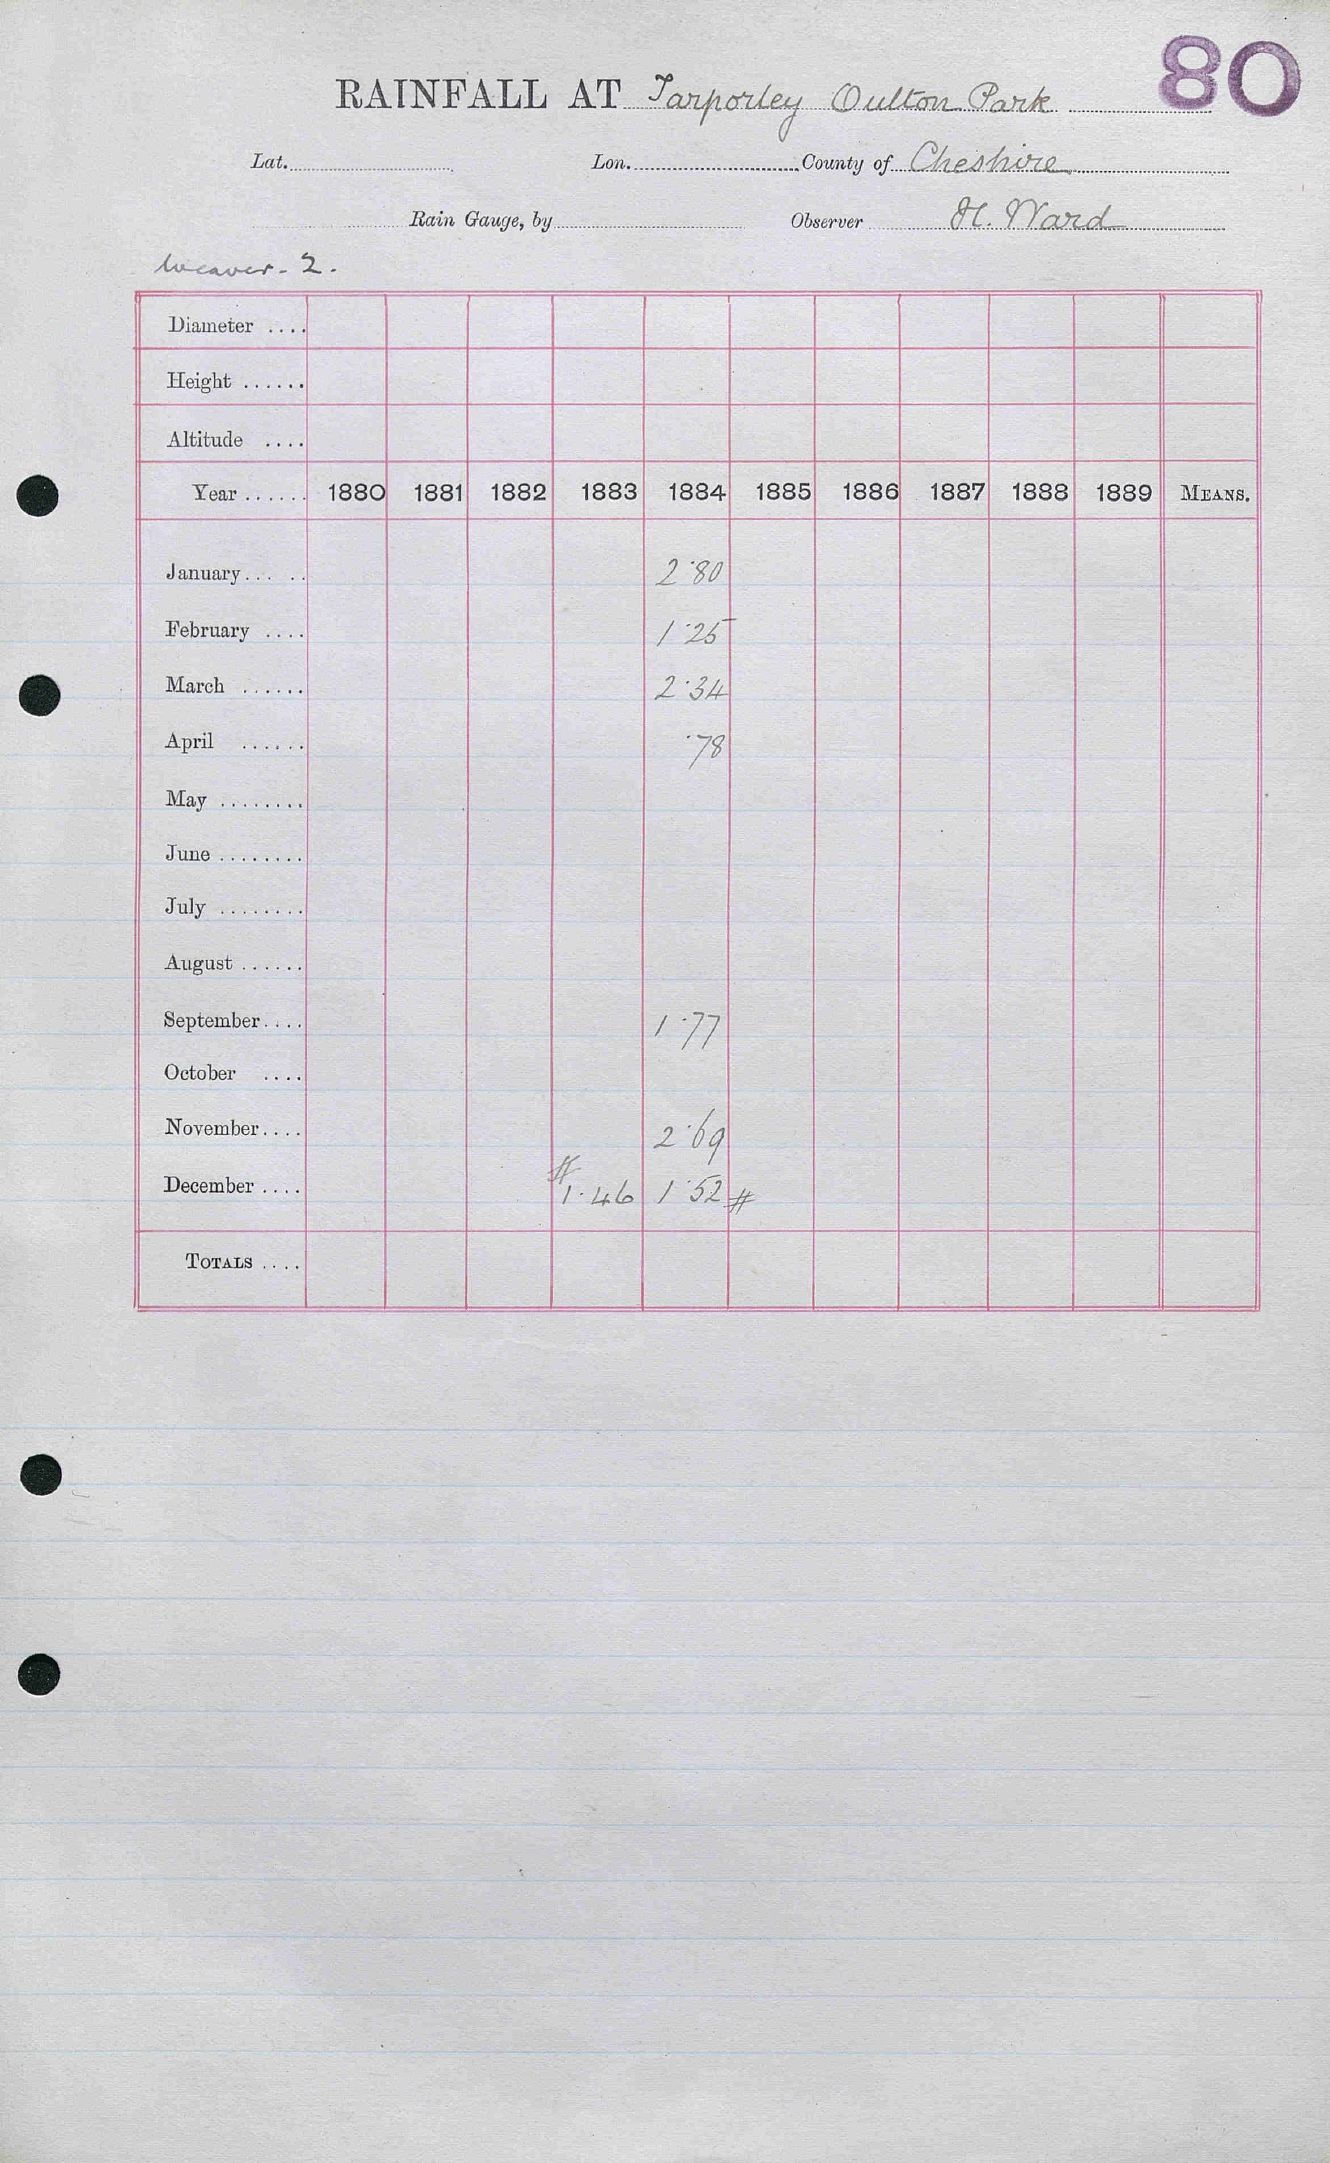 80
RAINFALL AT Tarporley Oulton Park
Lat. Lon. County of Cheshire
Rain Gauge, by Observer H. Ward
Weaver - 2.
Diameter ....
Height ......
Altitude ....
Year ...... 1880 1881 1882 1883 1884 1885 1886 1887 1888 1889 MEANS.
January... .. 2·80
February .... 1·25
March ...... 2·34
April ...... ·78
May ........
June ........
July ........
August ......
September.... 1·77
October ....
November.... 2·69
December .... # 1·46 1·52 #
TOTALS ....